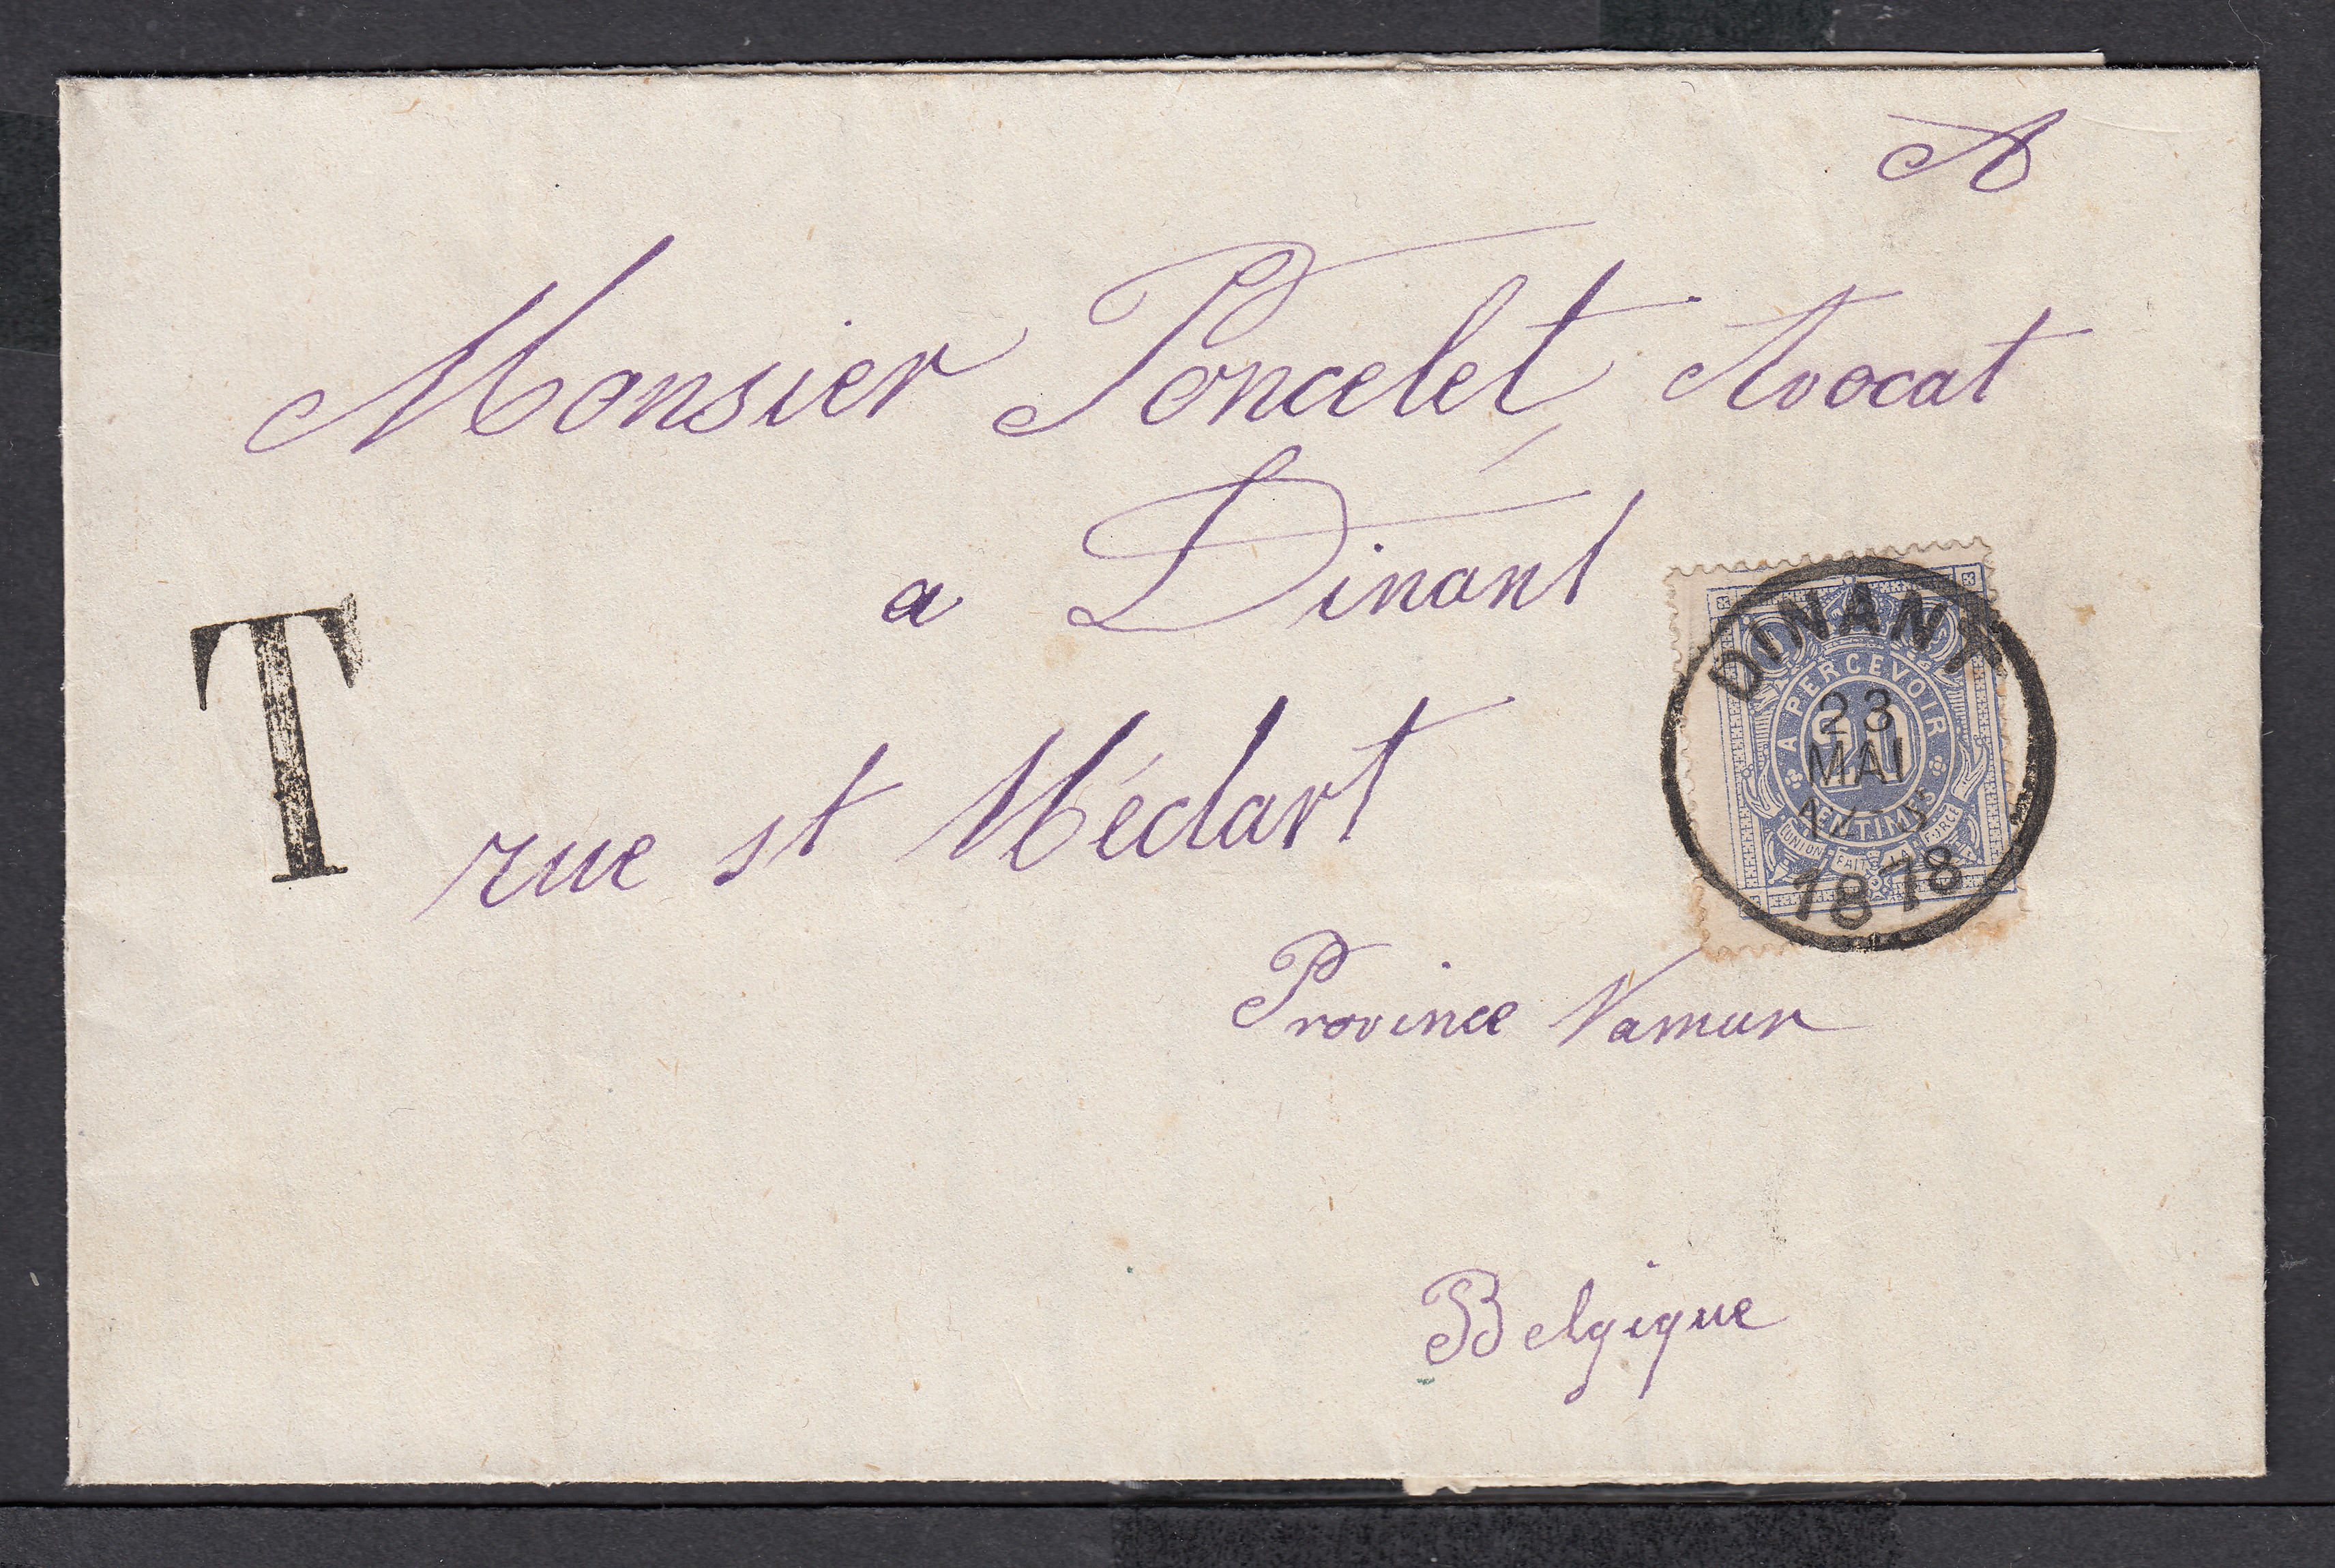 A
Monsier Poncelet Avocat
a Dinant
T
rue st Médart
Province Namur
Belgique
DINANT
23
MAI
1878
A PERCEVOIR
20
CENTIMES
L'UNION FAIT LA FORCE